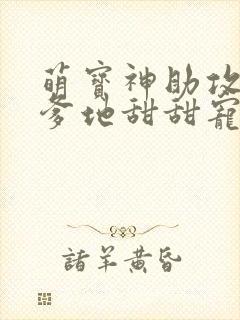 萌寳神助攻
爹地甜甜寵
諸羊黃昏